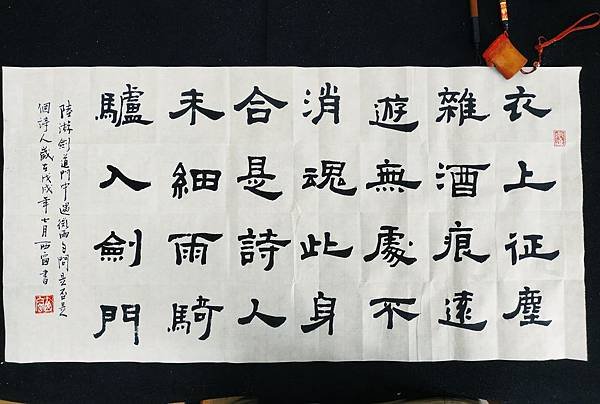 衣上征塵
雜酒痕遠
遊無處不
消魂此身
合是詩人
未細雨騎
驢入劍門
陸游劍道門中遇微雨自問是否是
個詩人歲在戊戌年七月西窗書